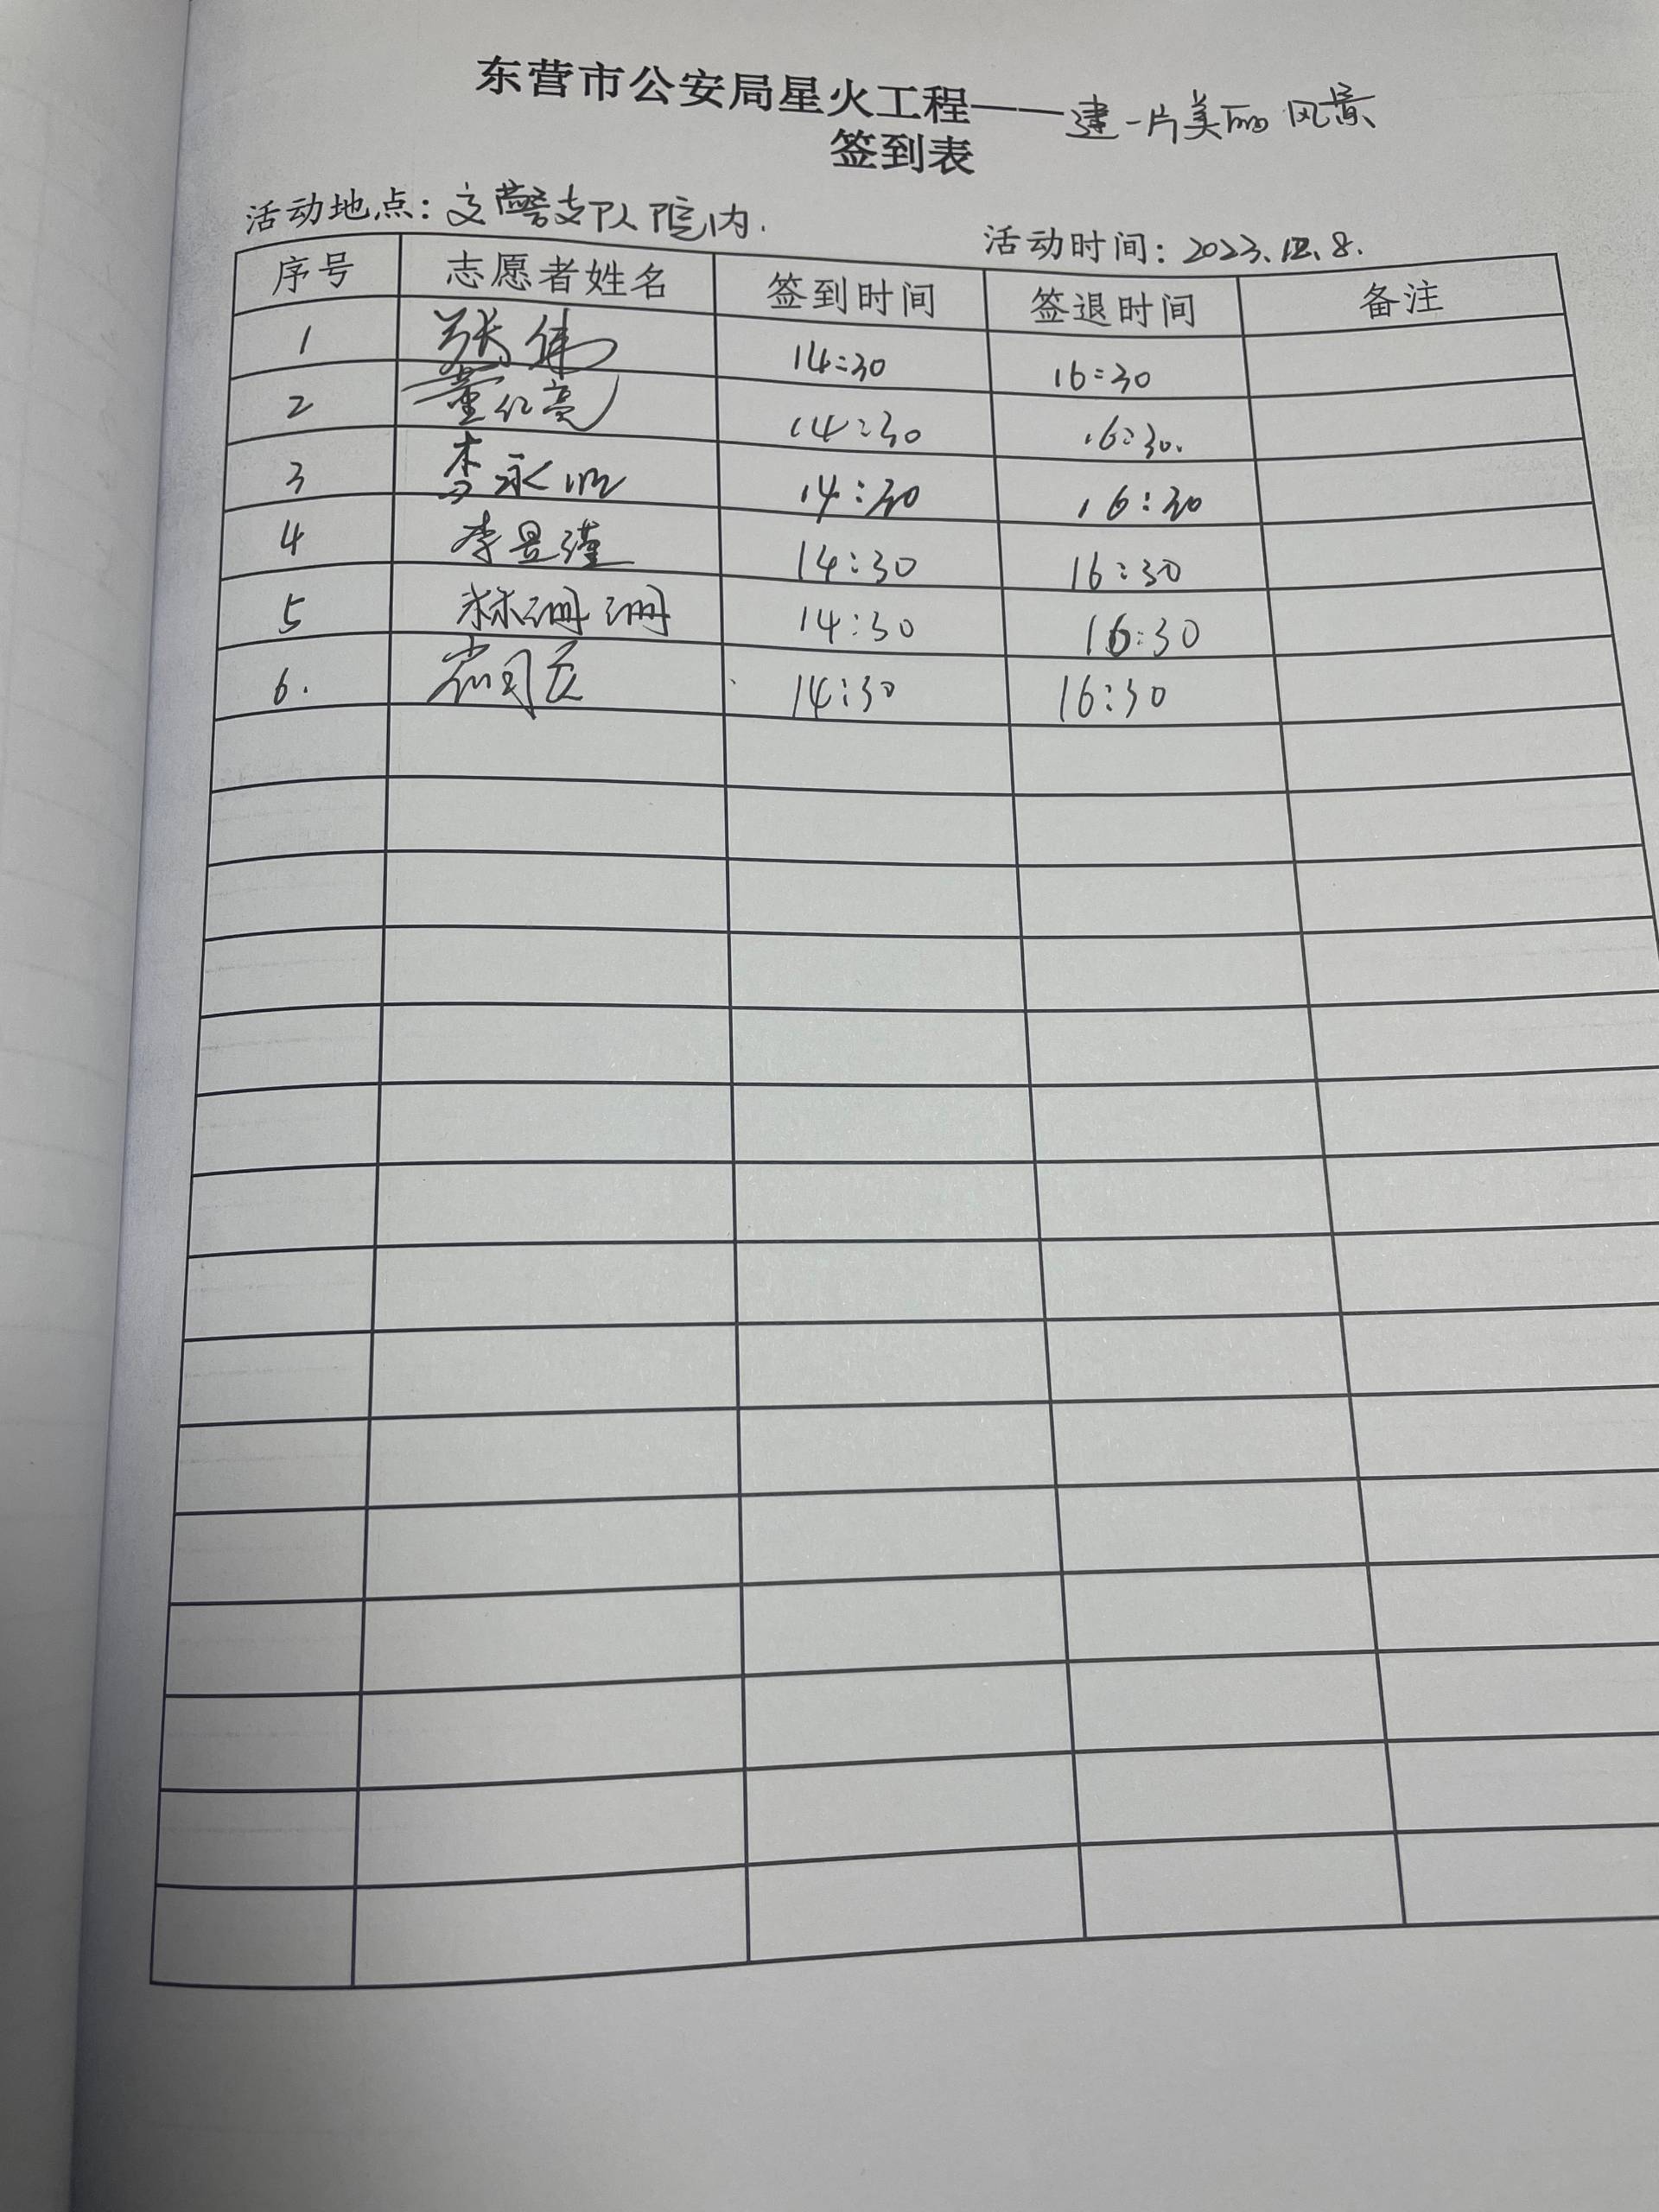 东营市公安局星火工程——建一片美丽风景
签到表
活动地点：交警支队院内.
活动时间：2023.12.8.
序号 志愿者姓名 签到时间 签退时间 备注
1 张伟 14:30 16:30
2 董亿亮 14:30 16:30.
3 李永 14:30 16:30
4 李昱瑾 14:30 16:30
5 林珊珊 14:30 16:30
6. 14:30 16:30